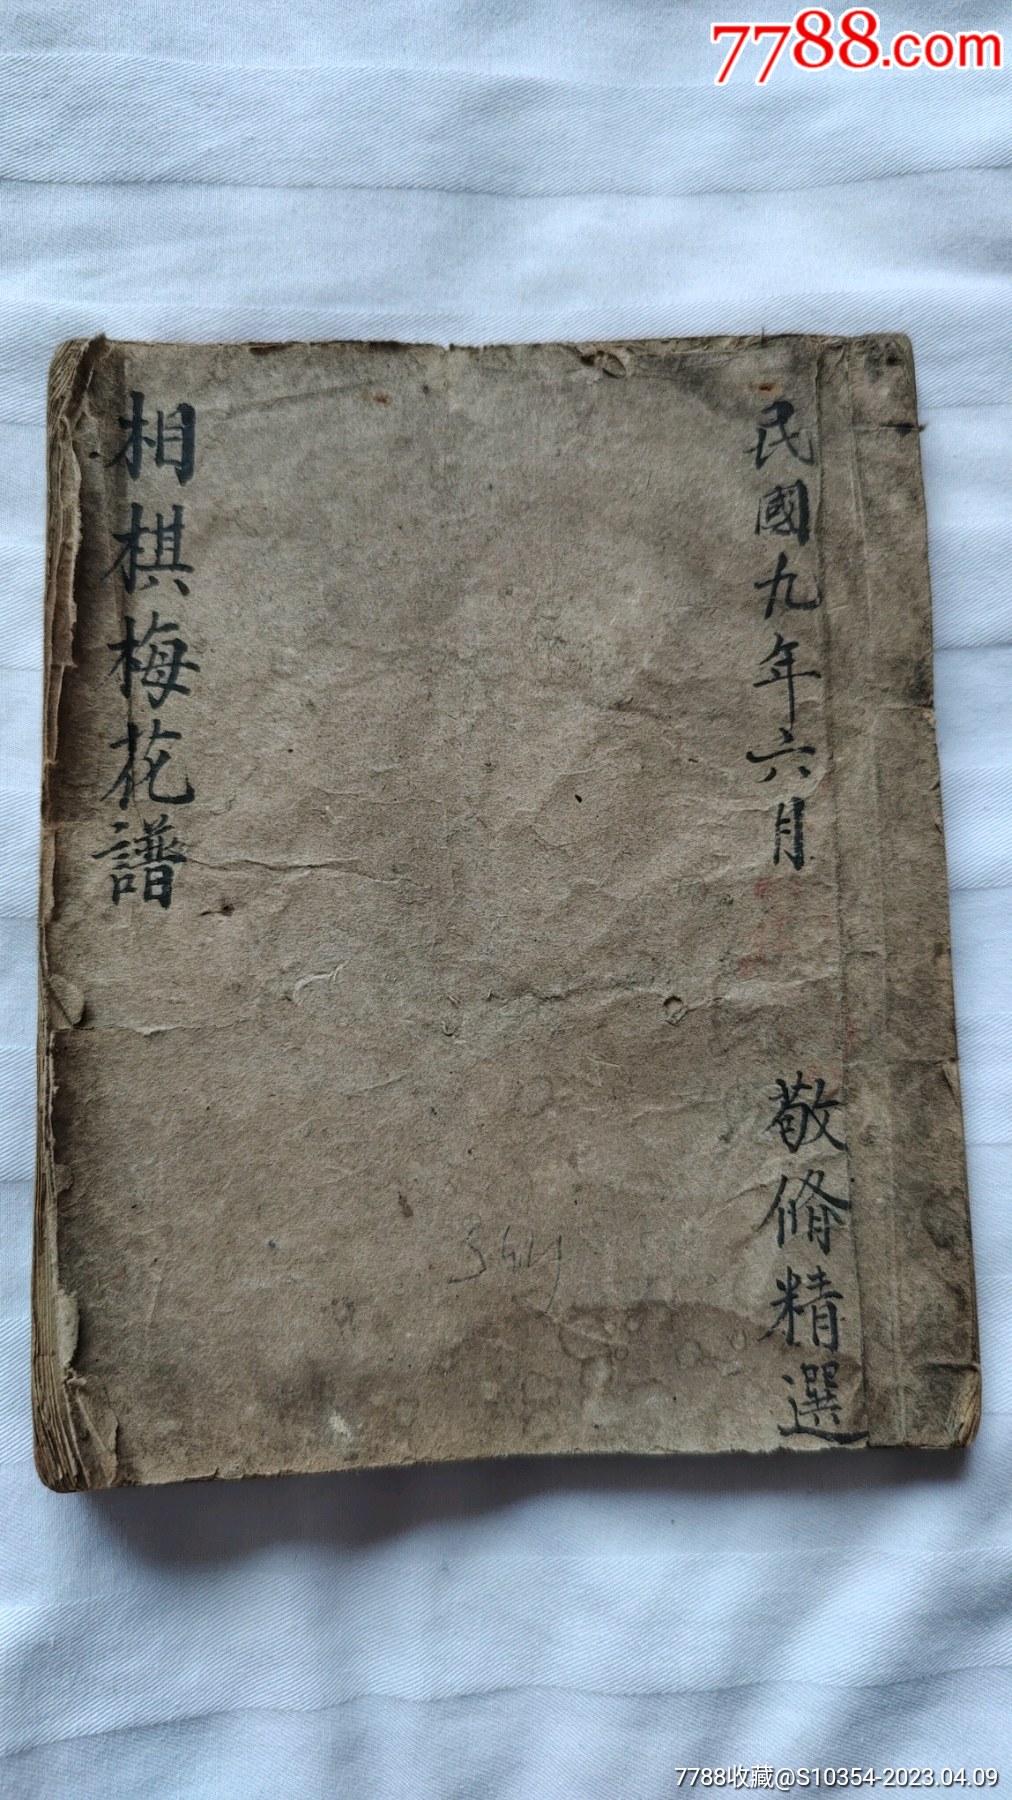 7788.com
民國九年六月
敬脩精選
相棋梅花譜
7788收藏@S10354-2023.04.09